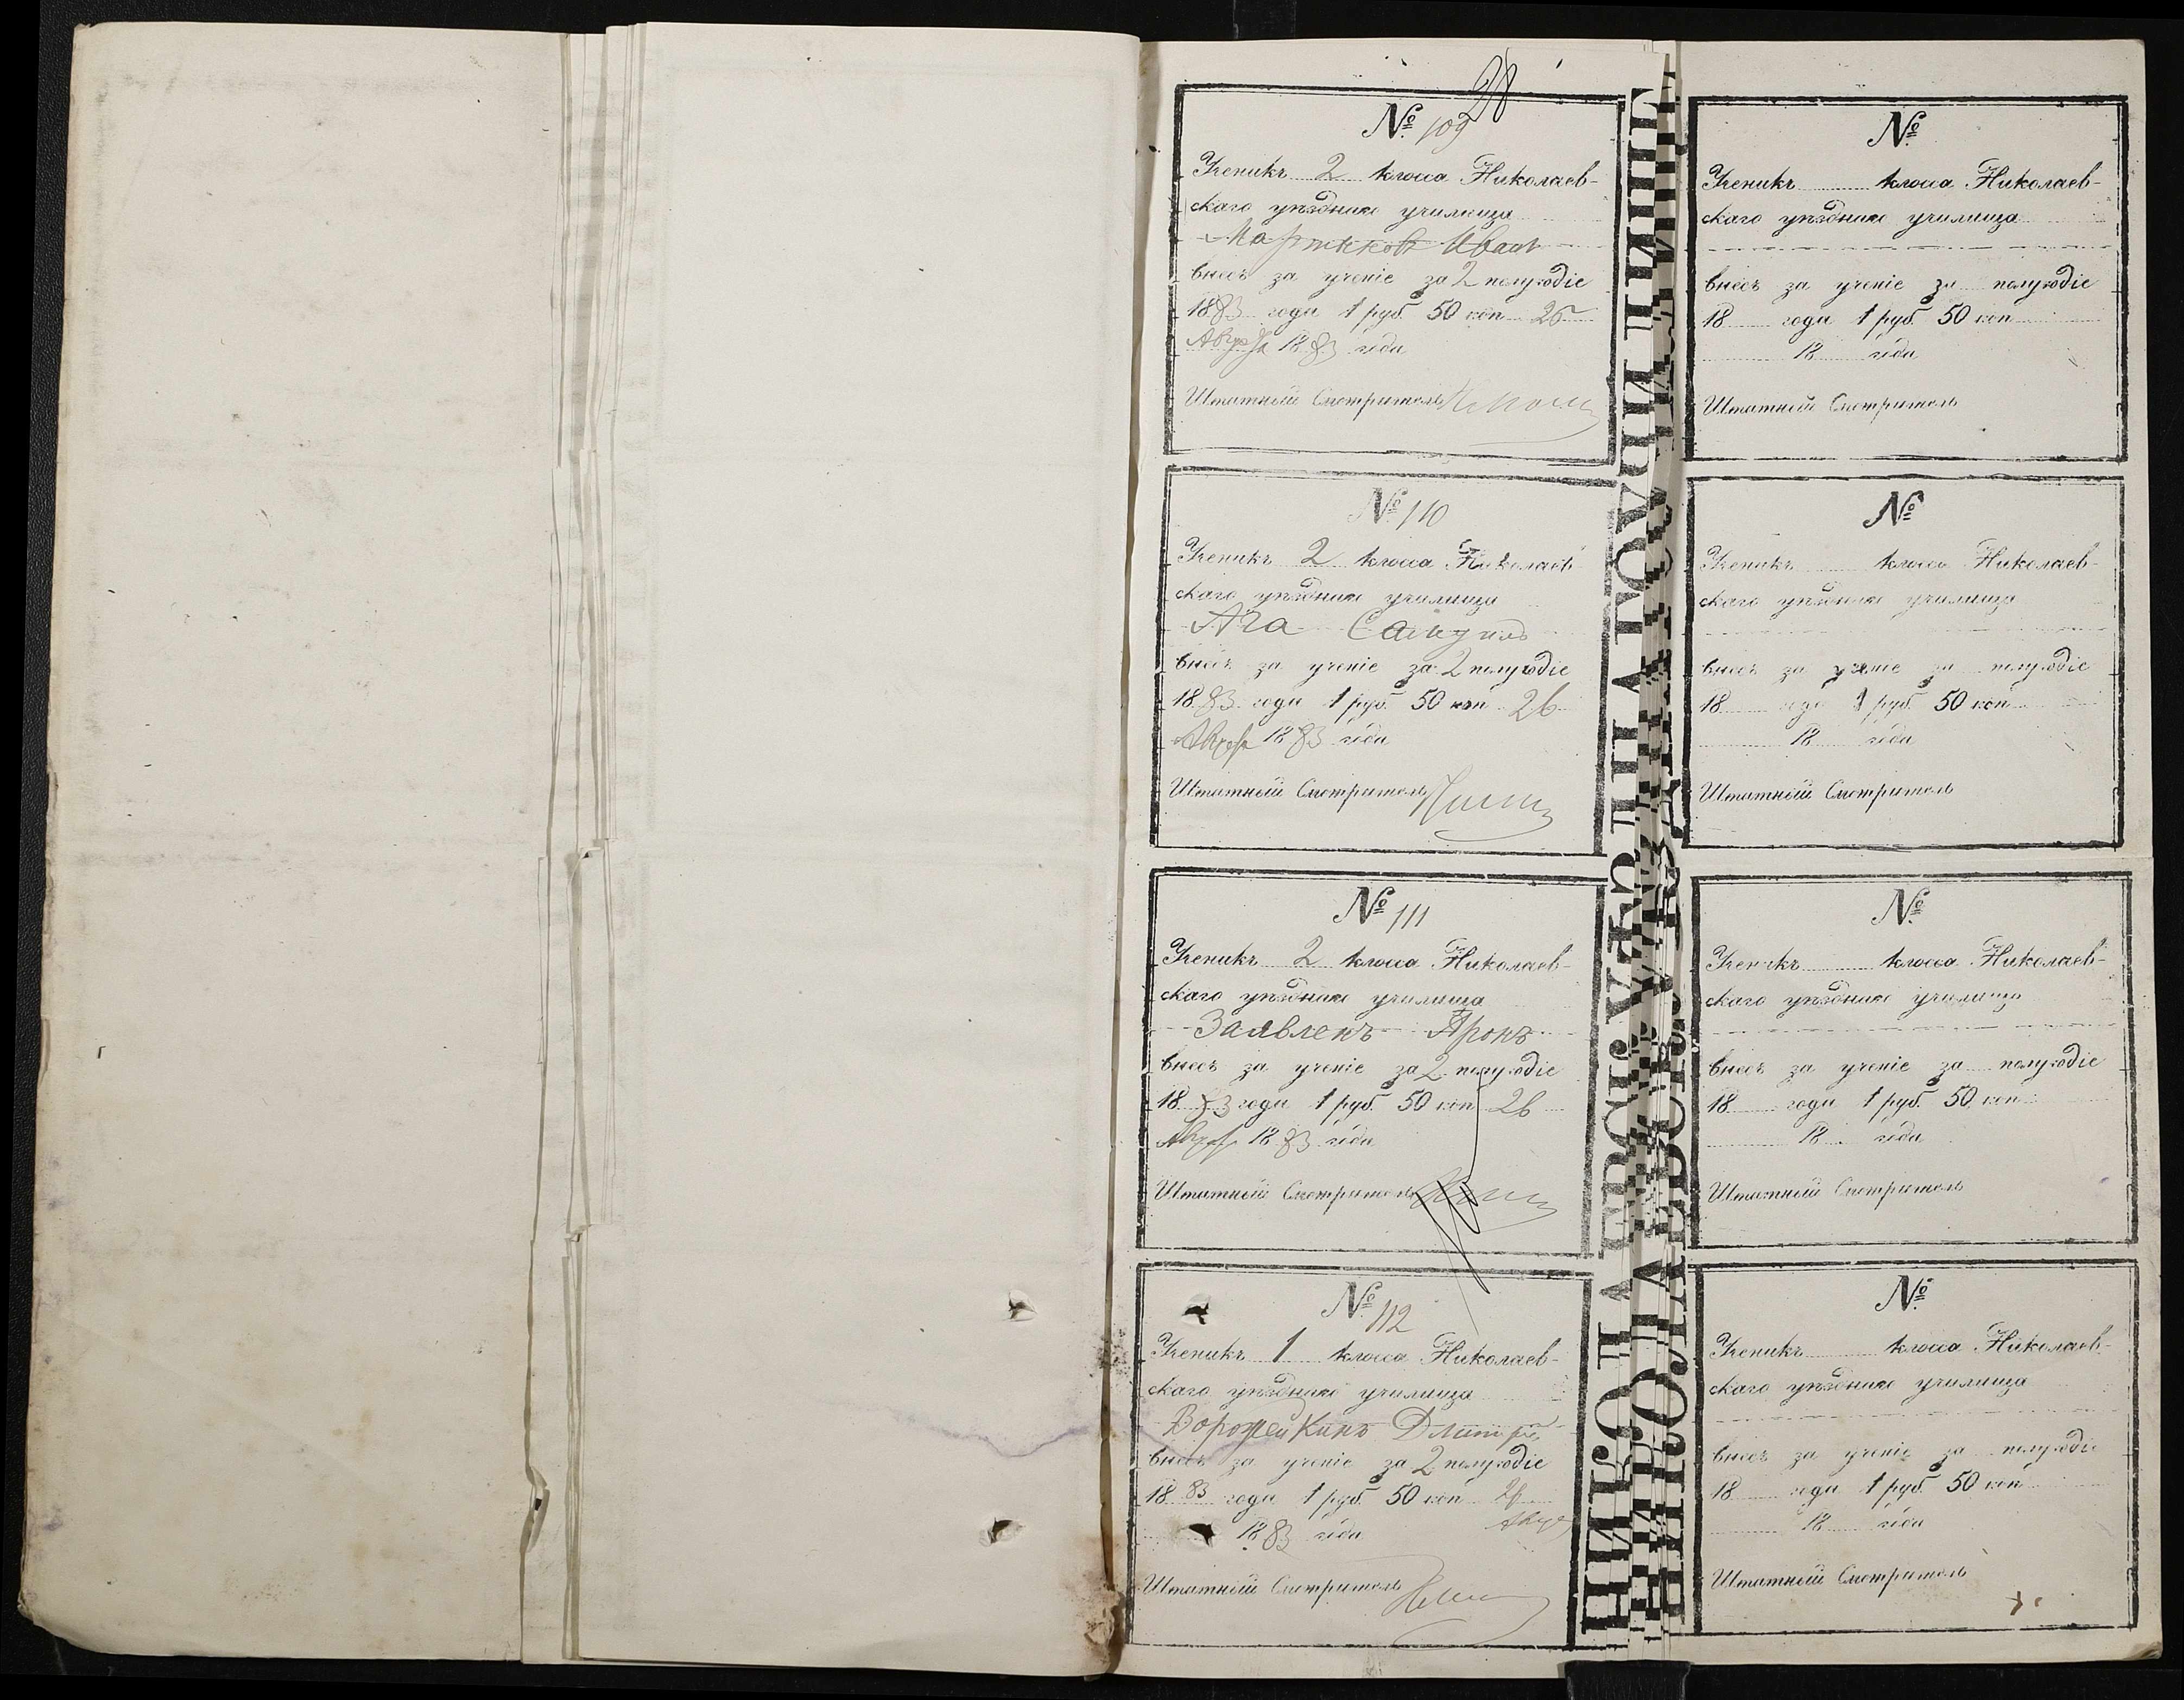 28
№ 109
Ученикъ 2 класса Николаев-
скаго уѣзднаго училища
Иванъ
внесъ за ученіе за 2 полугодіе
1883 года 1 руб. 50 коп. 25
Августа 1883 года
Штатный Смотритель
№ 110
Ученикъ 2 класса Николаев-
скаго уѣзднаго училища
Ага
внесъ за ученіе за 2 полугодіе
1883 года 1 руб. 50 коп. 26
Августа 1883 года
Штатный Смотритель
№ 111
Ученикъ 2 класса Николаев-
скаго уѣзднаго училища
Заявленъ Аронъ
внесъ за ученіе за 2 полугодіе
1883 года 1 руб. 50 коп. 26
Августа 1883 года
Штатный Смотритель
№ 112
Ученикъ 1 класса Николаев-
скаго уѣзднаго училища
Ворожейкинъ Дмитрій
внесъ за ученіе за 2 полугодіе
1883 года 1 руб. 50 коп. 26
Авгус
1883 года
Штатный Смотритель
№
Ученикъ класса Николаев-
скаго уѣзднаго училища
внесъ за ученіе за полугодіе
18 года 1 руб. 50 коп.
18 года
Штатный Смотритель
№
Ученикъ класса Николаев-
скаго уѣзднаго училища
внесъ за ученіе за полугодіе
18 года 1 руб. 50 коп.
18 года
Штатный Смотритель
№
Ученикъ класса Николаев-
скаго уѣзднаго училища
внесъ за ученіе за полугодіе
18 года 1 руб. 50 коп.
18 года
Штатный Смотритель
№
Ученикъ класса Николаев-
скаго уѣзднаго училища
внесъ за ученіе за полугодіе
18 года 1 руб. 50 коп.
18 года
Штатный Смотритель